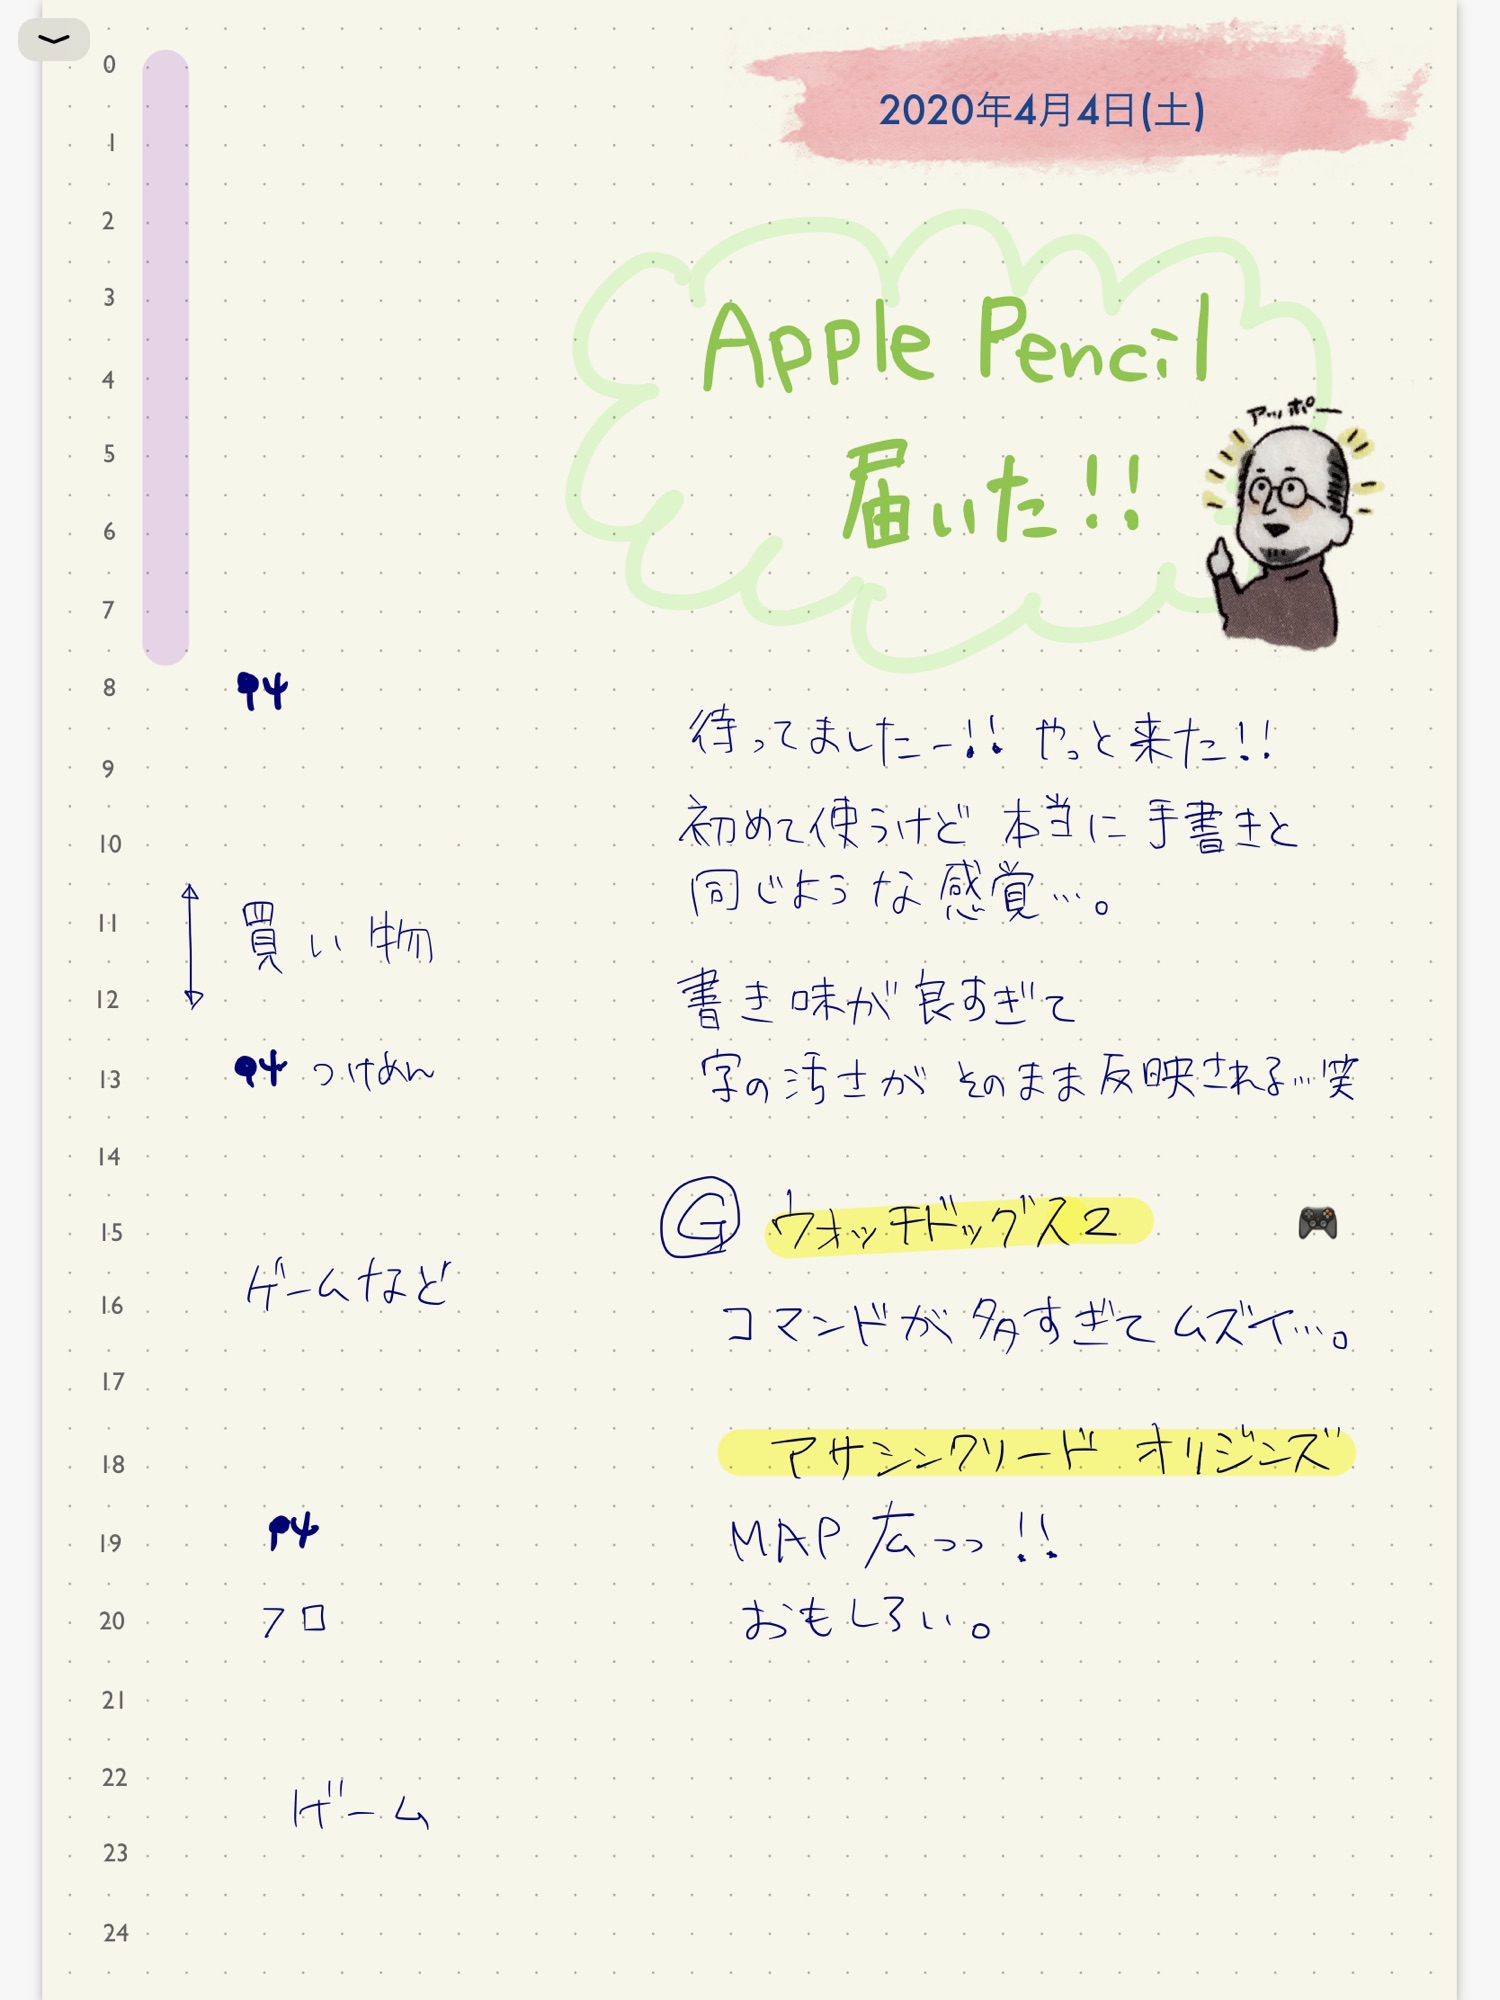 2020年4月4日(土)
Apple Pencil
アッポー
届いた!!
0
1
2
3
4
5
6
7
8
9
10
11
買い物
12
13
つけめん
14
15
ゲームなど
16
17
18
19
20
フロ
21
22
ゲーム
23
24
待ってましたー!! やっと来た!!
初めて使うけど 本当に 手書きと
同じような感覚…。
書き味が良すぎて
字の汚さが そのまま反映される…笑
G ウォッチドッグス2
コマンドが多すぎてムズイ…。
アサシンクリード オリジンズ
MAP 広っっ!!
おもしろい。